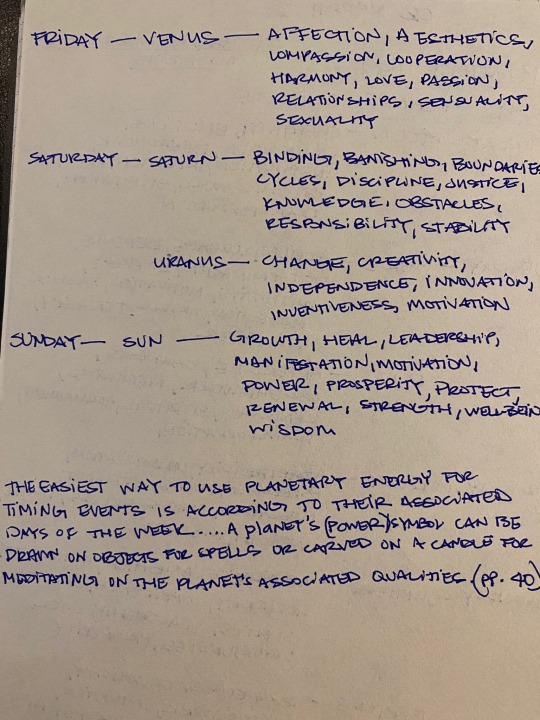 FRIDAY — VENUS — AFFECTION, AESTHETICS,
COMPASSION, COOPERATION,
HARMONY, LOVE, PASSION,
RELATIONSHIPS, SENSUALITY,
SEXUALITY
SATURDAY — SATURN — BINDING, BANISHING, BOUNDARIES
CYCLES, DISCIPLINE, JUSTICE,
KNOWLEDGE, OBSTACLES,
RESPONSIBILITY, STABILITY
URANUS — CHANGE, CREATIVITY,
INDEPENDENCE, INNOVATION,
INVENTIVENESS, MOTIVATION
SUNDAY — SUN — GROWTH, HEAL, LEADERSHIP,
MANIFESTATION, MOTIVATION,
POWER, PROSPERITY, PROTECT,
RENEWAL, STRENGTH, WELL-BEIN
WISDOM
THE EASIEST WAY TO USE PLANETARY ENERGY FOR
TIMING EVENTS IS ACCORDING TO THEIR ASSOCIATED
DAYS OF THE WEEK.....A PLANET'S (POWER) SYMBOL CAN BE
DRAWN ON OBJECTS FOR SPELLS OR CARVED ON A CANDLE FOR
MEDITATING ON THE PLANET'S ASSOCIATED QUALITIES (pp. 40)